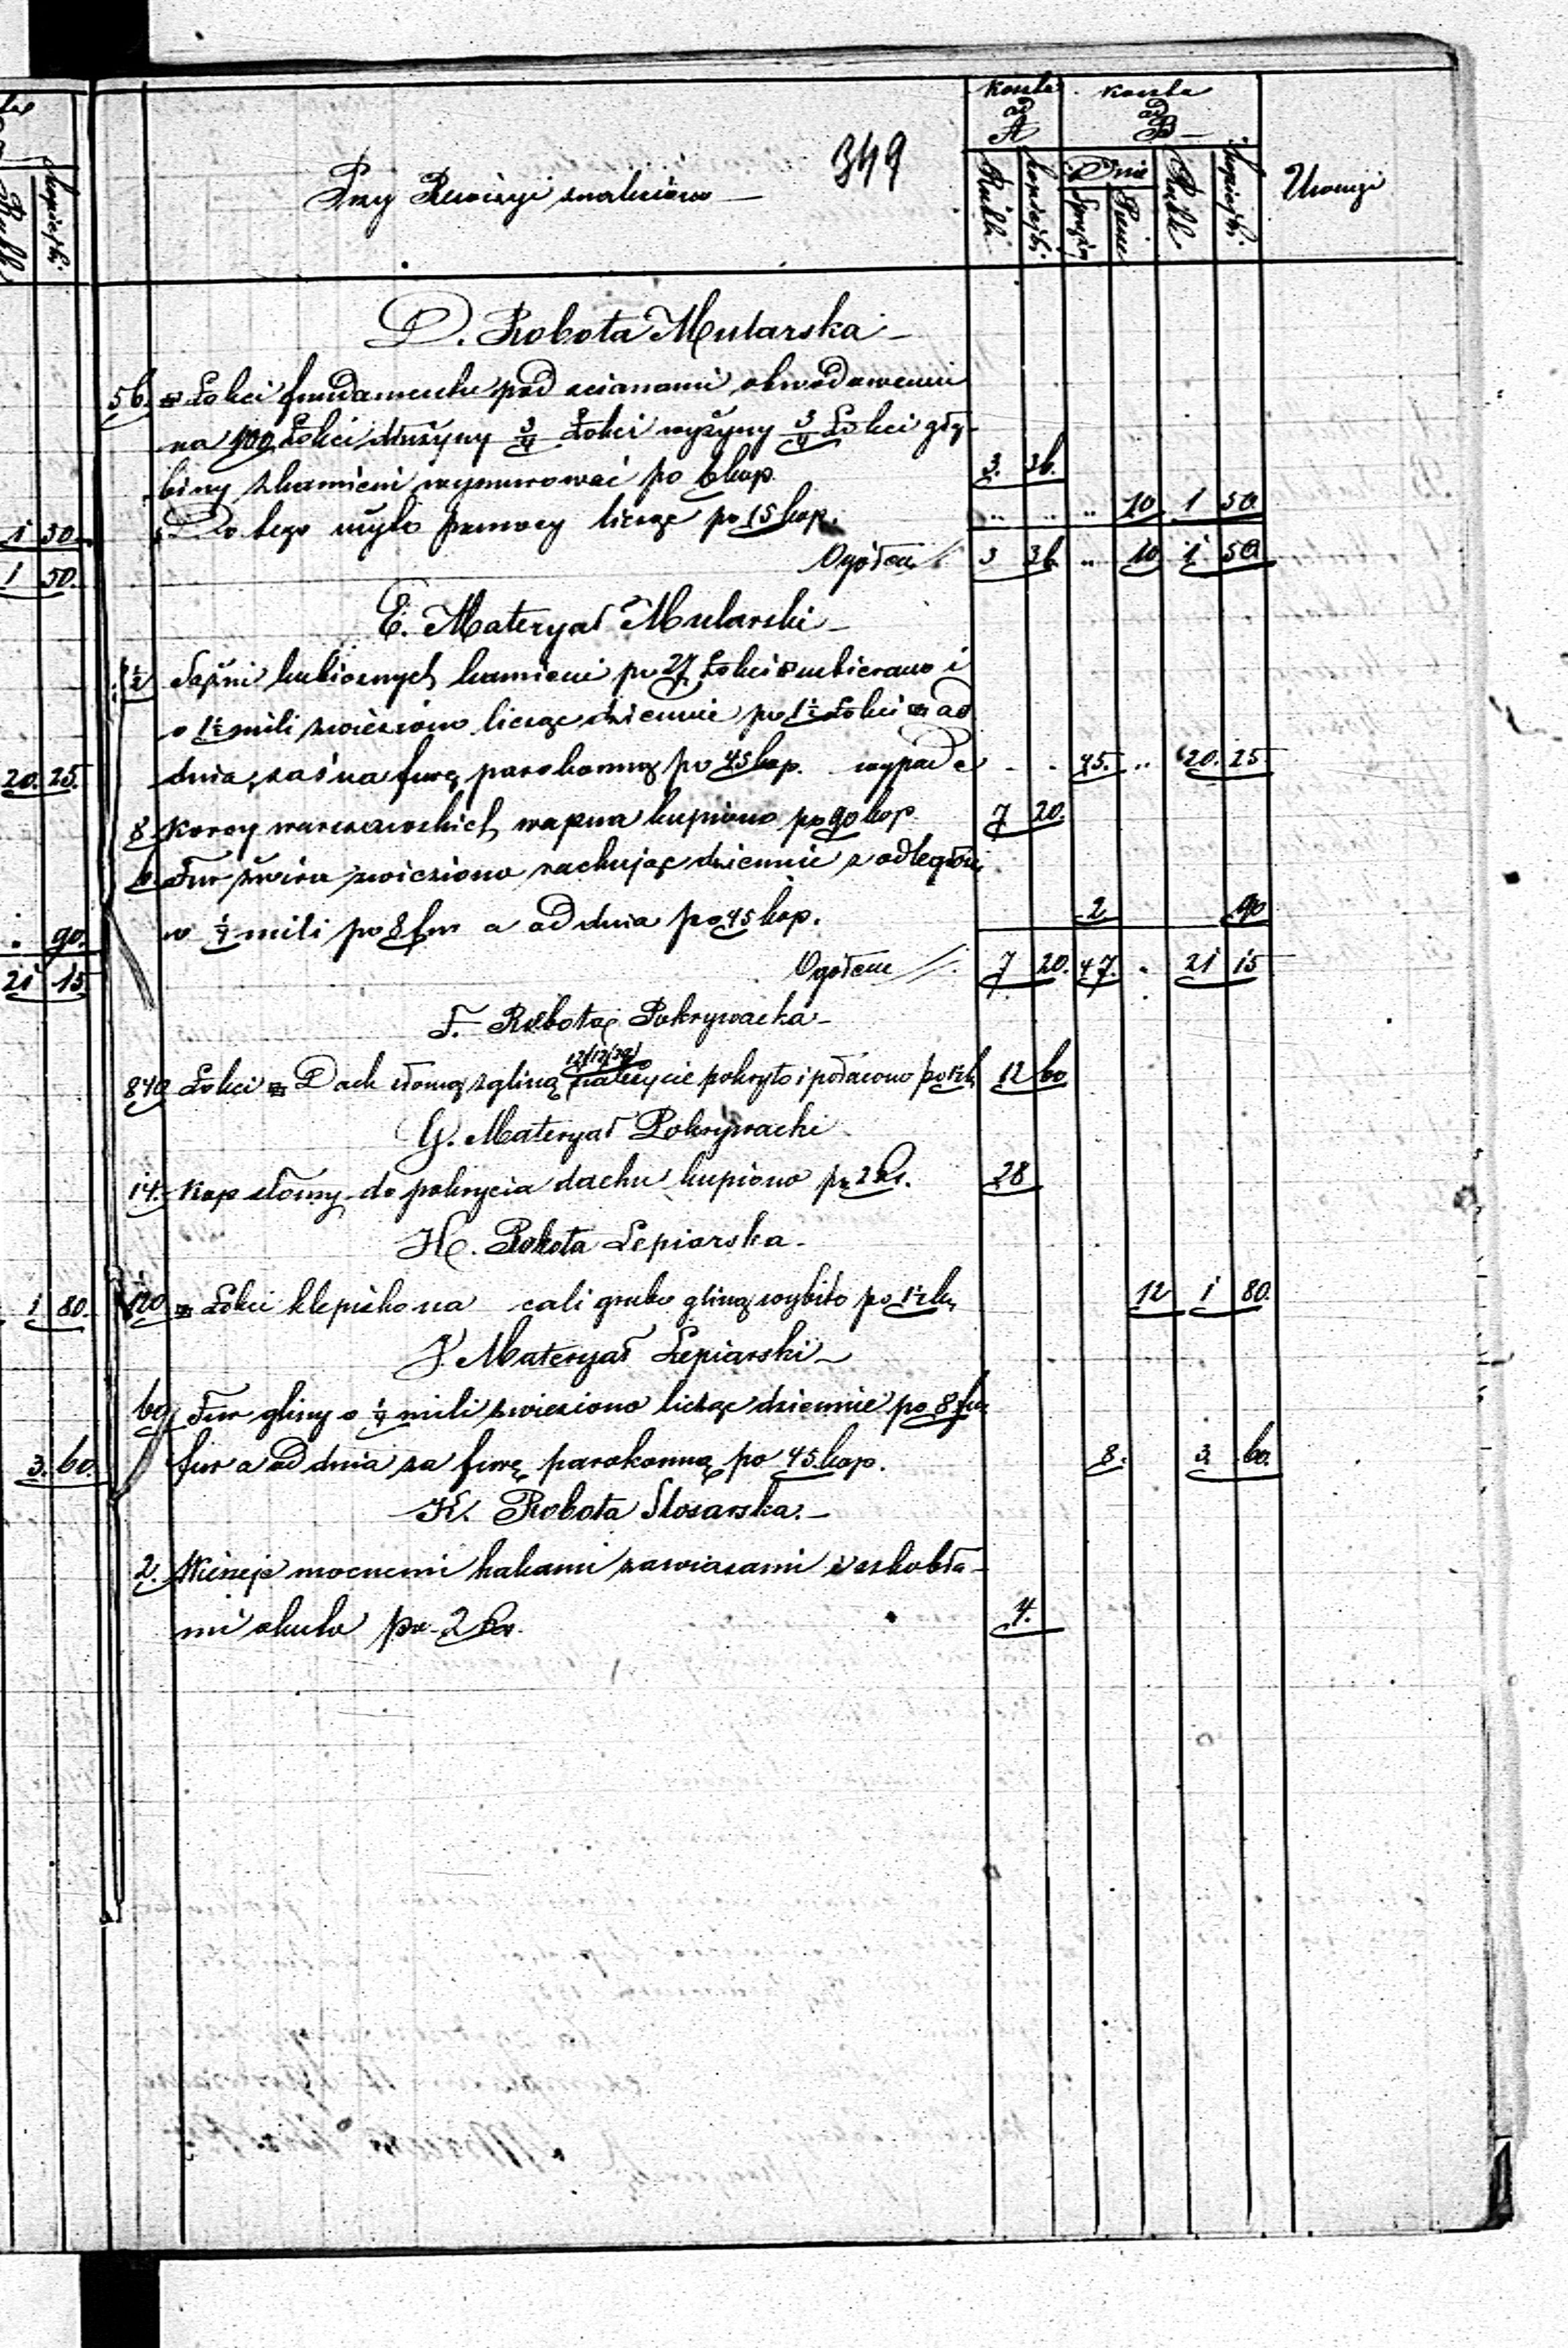 349
Przy Rewizyi znaleziono
koszta ad A
koszta ad B
Rubli kopiejki Dnie Rubli kopiejki Uwagi
Sprzęż. Piesze
D. Robota Mularska
56. □ Łokci fundamentu pod scianami obwodowemi
na 100 Łokci dłużyny 3/4 Łokci wyżyny 3/4 Łokci głę-
biny z kamieni wymurować po 6 kop. 3. 36.
Do tego użyto pomocy licząc po 15 kop. .. .. .. 10 1 50
Ogółem 3 36 .. 10 1 50
E. Materyał Mularski
Sążni kubicznych kamieni po 27 Łokci uzbierano i
o 1½ mili zwieziono licząc dziennie po 1½ Łokci a od
dnia, zaś na furę parokonną po 45 kop. wypada . . 45. .. 20. 25
8 Korcy warszawskich wapna kupiono po 90 kop. 7 20.
Fur żwiru zwieziono rachując dziennie z odległości
w ¼ mili po 8 fur a od dnia po 45 kop. 2 90
Ogółem 7 20. 47. . 21 15
F. Robota Pokrywacka
840 Łokci □ Dach słomą z gliną należycie pokryto i płacono po 1½ k. 12 60
G. Materyał Pokrywacki
14. Kop słomy do pokrycia dachu kupiono po 2 Rs. 28
H. Robota Lepiarska
120 □ Łokci klepisko na cali grubo gliną wybito po 1½ k. 12 1 80.
J. Materyał Lepiarski
60 Fur gliny o ¼ mili zwieziono licząc dziennie po 8 fur
fur a od dnia za furę parokonną po 45 kop. 8. 3. 60.
K. Robota Slosarska.
2. Wierzeje mocnemi hakami zawiasami i szkobla-
mi okuto po 2 Rs. 4.
Rubli kopiejki.
1 50.
1 50.
20. 25.
. 90.
21 15
1 80.
3. 60.